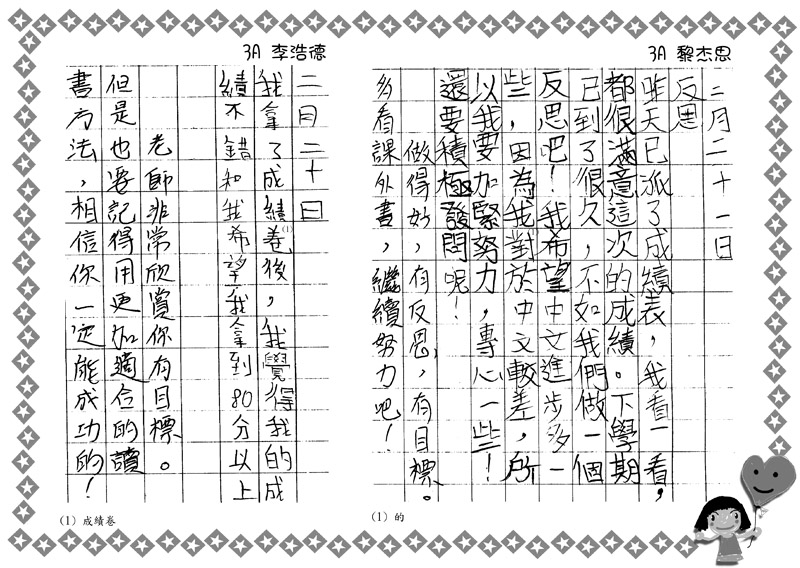 3A 黎杰思
二月二十一日
反思
昨天已派了成績表，我看一看，
都很滿意這次的成績。下學期
已到了很久，不如我們做一個
反思吧！我希望中文進步多一
些，因為我對於中文較差，所
以我要加緊努力，專心一些！
還要積極發問呢！
做得好，有反思，有目標。
多看課外書，繼續努力吧！
(1) 的
3A 李浩德
二月二十日
我拿了成績卷(1)後，我覺得我的成
績不錯和我希望我拿到80分以上
老師非常欣賞你有目標。
但是也要記得用更加適合的讀
書方法，相信你一定能成功的！
(1) 成績卷